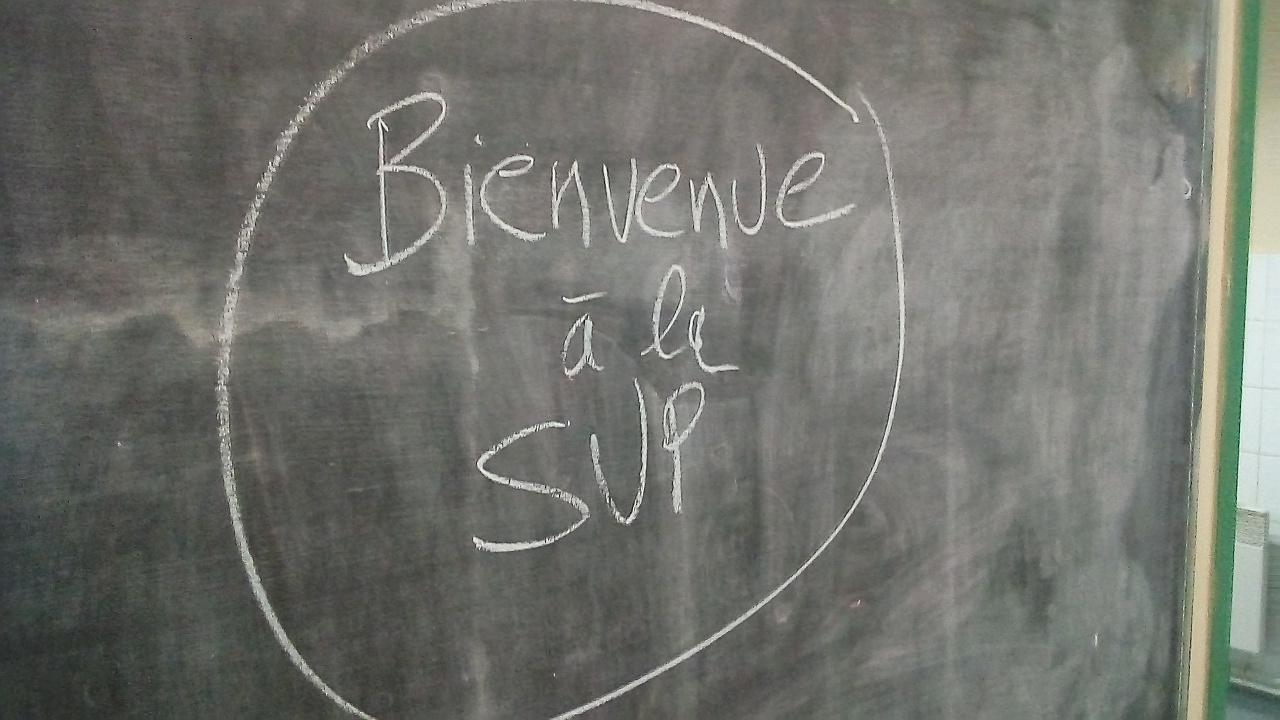 Bienvenue
à la
SVP